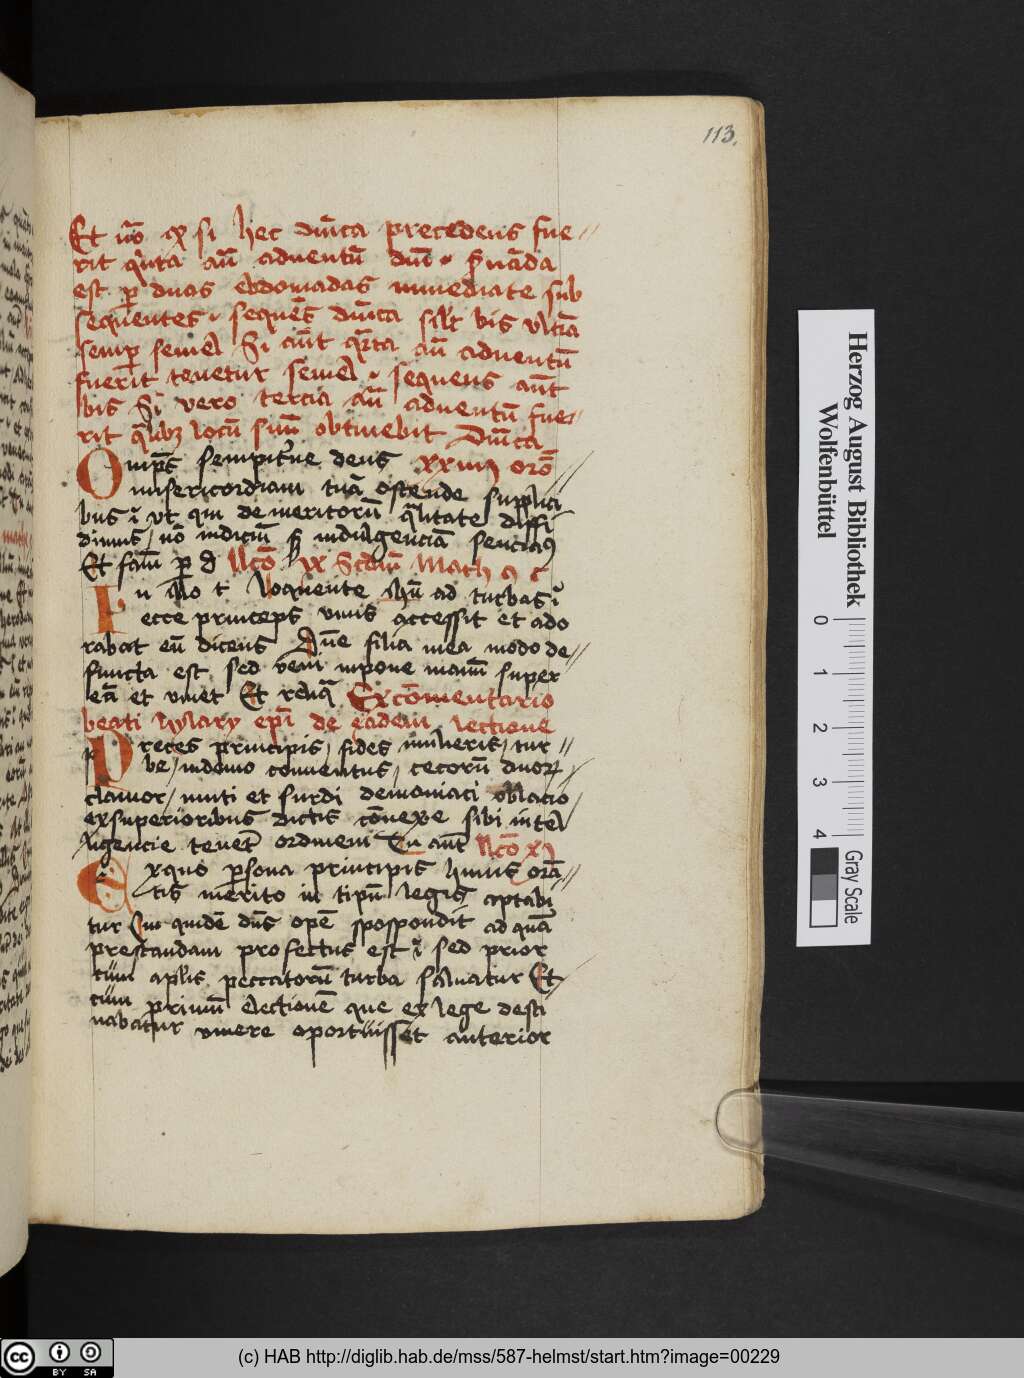 113.
Et nō ꝙ si hec dn̄ica precedens fue-
rit qn̄ta an̄ aduentū dn̄i · Seruāda
est ꝑ duas ebdomadas inmediate sub
sequentes · sequēs dn̄ica silr bis vltīa
semper semel Si aūt qrta an̄ aduentū
fuerit tenetur semel · sequens aūt
bis Si vero tercia an̄ aduentū fue-
rit qlibꝫ locū suū obtinebit Dn̄ica
Omps sempit'ne deus xxiiij orō
misericordiam tuā ostende supplici
bus ut qui de meritorū qlitate diffi
dimus / nō iudiciū sꝫ indulgenciā senciaꝰ
Et famū ꝑ d llcō ix Scdm Math 9 c
In illo t Loquente ihū ad turbas
ecce princeps vnus accessit et ado
rabat eū dicens Dn̄e filia mea modo de-
functa est sed veni inpone manū super
eā et viuet Et reliq Ex cōmentario
beati hylary epi de eadem lectione
Preces principis / fides mulieris / tur
be / in domo conuentus / cecorū duoꝝ
clamor / muti et surdi demoniaci oblacio
ex superioribus dictis cōnexe sibi intel
ligencie tenet ordinem Tu aūt llcō x
Exquo ꝑsona principis huius orā
tis merito in tipū legis aptabi
tur Cui quidē dūs opē spospondit ad quā
prestandam profectus est sed prior
cum aplis peccatorū turba saluatur Et
cum primū electionē que ex lege desti
nabatur viuere oportuisset anterior
Herzog August Bibliothek
Wolfenbüttel
0 1 2 3 4
Gray Scale
cc BY SA
(c) HAB http://diglib.hab.de/mss/587-helmst/start.htm?image=00229